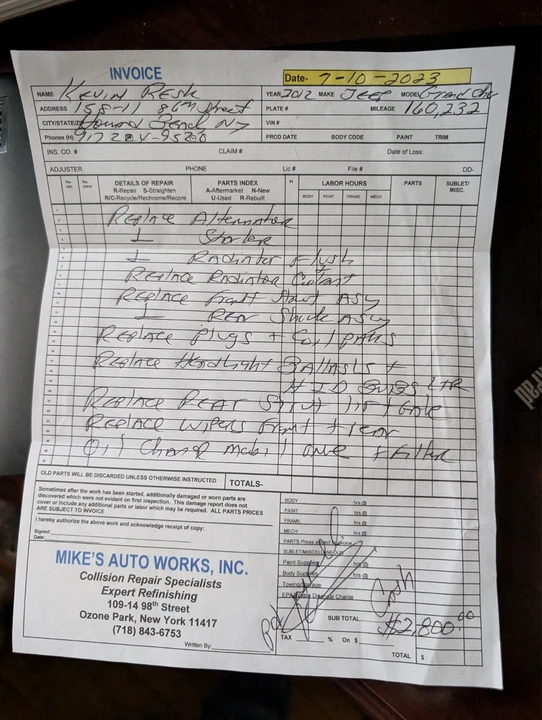 INVOICE
Date- 7-10-2023
NAME Kevin Resk
YEAR 2012 MAKE JEEP MODEL Grand Che
ADDRESS 158-11 86th Street
PLATE # MILEAGE 160,232
CITY/STATE/ Howard Beach NY
VIN #
Phones (H)
PROD DATE BODY CODE PAINT TRIM
INS. CO. # CLAIM # Date of Loss:
ADJUSTER PHONE Lic # File # DD-
DETAILS OF REPAIR PARTS INDEX LABOR HOURS PARTS SUBLET/
R-Repair S-Straighten A-Aftermarket N-New MISC.
R/C-Recycle/Rechrome/Recore U-Used R-Rebuilt BODY PAINT FRAME MECH
Replace Alternator
Starter
Radiator Flush
Replace Radiator Coolant
Replace Front Strut ASY
Rear Shock ASY
Replace Plugs + Coil packs
Replace Headlight Ballasts +
HID
Replace Rear Strut liftgate
Replace Wipers Front + rear
Oil Change mobil one + Filter
OLD PARTS WILL BE DISCARDED UNLESS OTHERWISE INSTRUCTED TOTALS-
Sometimes after the work has been started, additionally damaged or worn parts are
discovered which were not evident on first inspection. This damage report does not
cover or include any additional parts or labor which may be required. ALL PARTS PRICES
ARE SUBJECT TO INVOICE
I hereby authorize the above work and acknowledge receipt of copy:
Signed:
Date:
BODY hrs @
PAINT hrs @
FRAME hrs @
MECH hrs @
PARTS Prices
SUBLET/MISCELLANEOUS
Paint Supplies hrs @
Body Supplies hrs @
Towing/Storage
EPA/Waste Disposal Charge
Cash
SUB TOTAL $2,800.00
TAX % On $
TOTAL $
MIKE'S AUTO WORKS, INC.
Collision Repair Specialists
Expert Refinishing
109-14 98th Street
Ozone Park, New York 11417
(718) 843-6753
Written By: